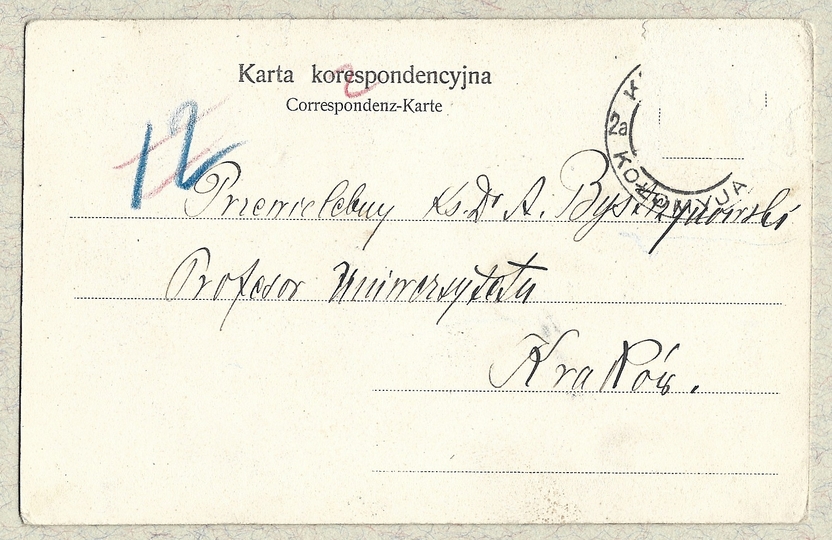 Karta korespondencyjna
Correspondenz-Karte
2
12
2a KOŁOMYJA
Przewielebny Ks. Dr A. Bystrzonowski
Profesor Uniwersytetu
Kraków.